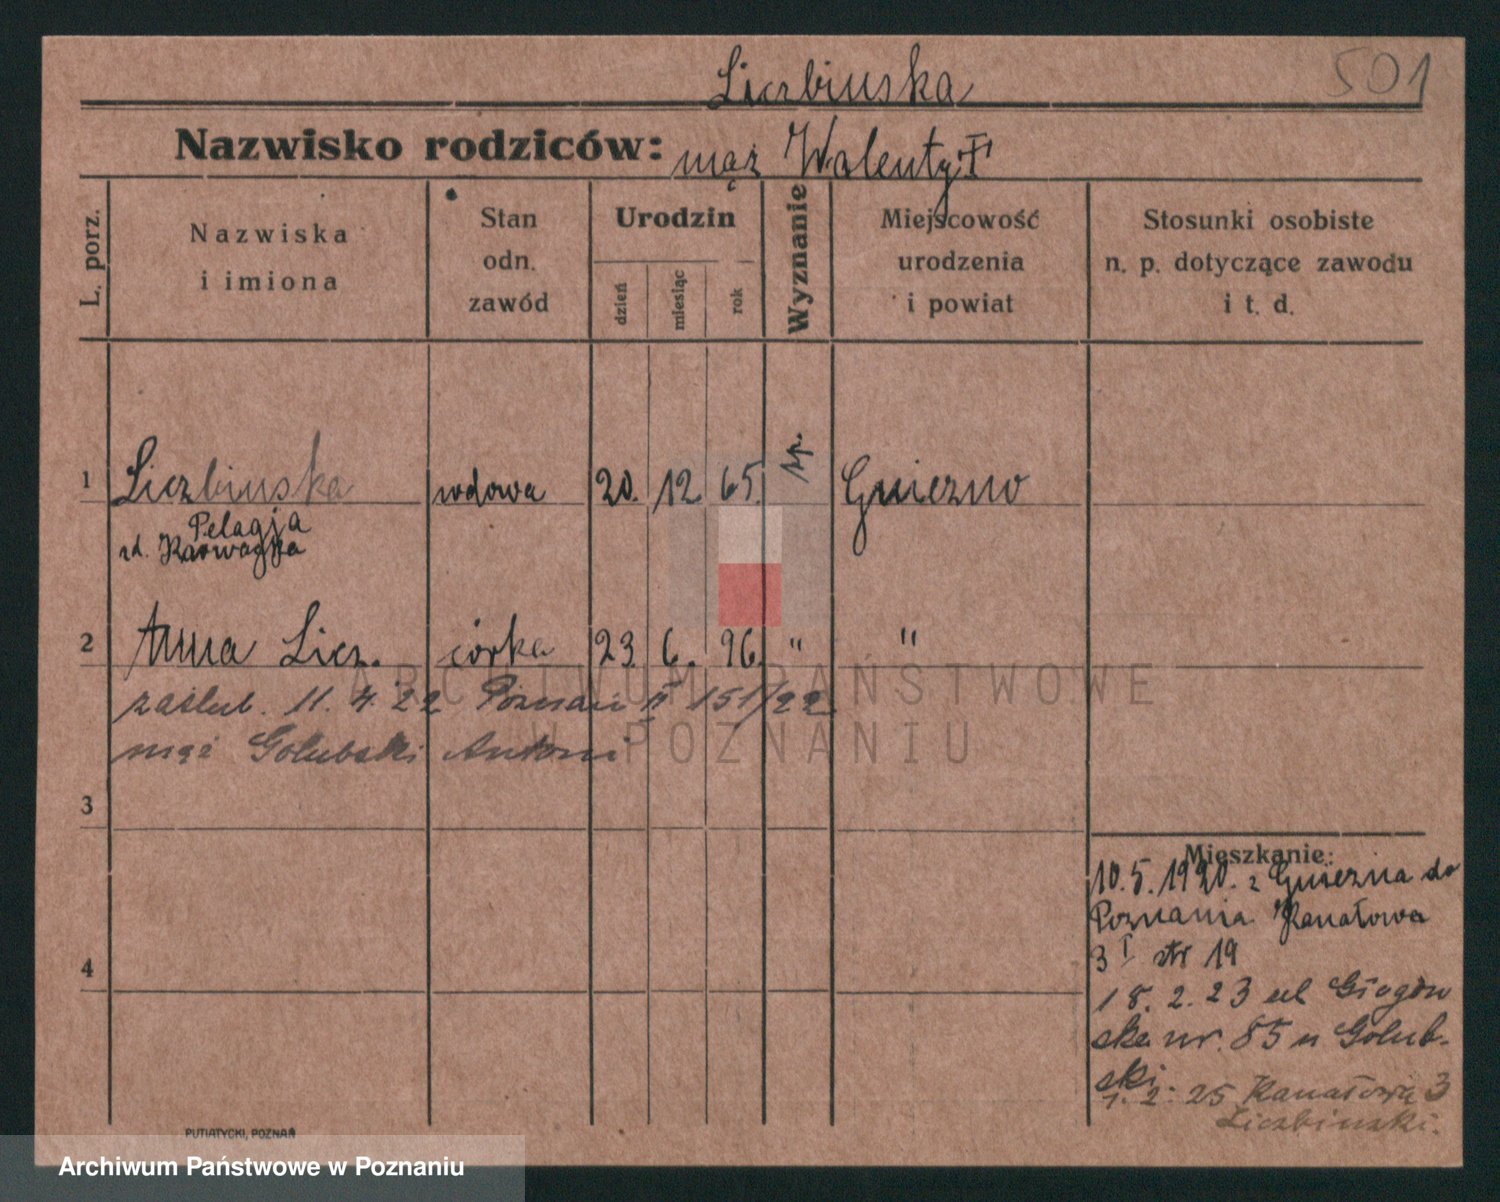 501
Liczbinska
Nazwisko rodziców: mąż Walenty I
L. porz.
Nazwiska
i imiona
Stan
odn.
zawód
Urodzin
dzień
miesiąc
rok
Wyznanie
Miejscowość
urodzenia
i powiat
Stosunki osobiste
n. p. dotyczące zawodu
i t. d.
1 Liczbinska wdowa 20. 12. 65. rp. Gniezno
Pelagja
rd.
2 Anna Licz. córka 23. 6. 96. " "
zaślub. 11. 4. 22 Poznań II 151/22
mąż Golubski Antoni
3
4
Mieszkanie:
10.5.1920. z Gniezna do
Poznania Kanałowa
3 I str 19
18. 2. 23 ul Głogow
ska nr. 85 u Golub-
ski
1. 2. 25 Kanałowa 3
Liczbinski.
PUTIATYCKI, POZNAŃ
ARCHIWUM PAŃSTWOWE
W POZNANIU
Archiwum Państwowe w Poznaniu